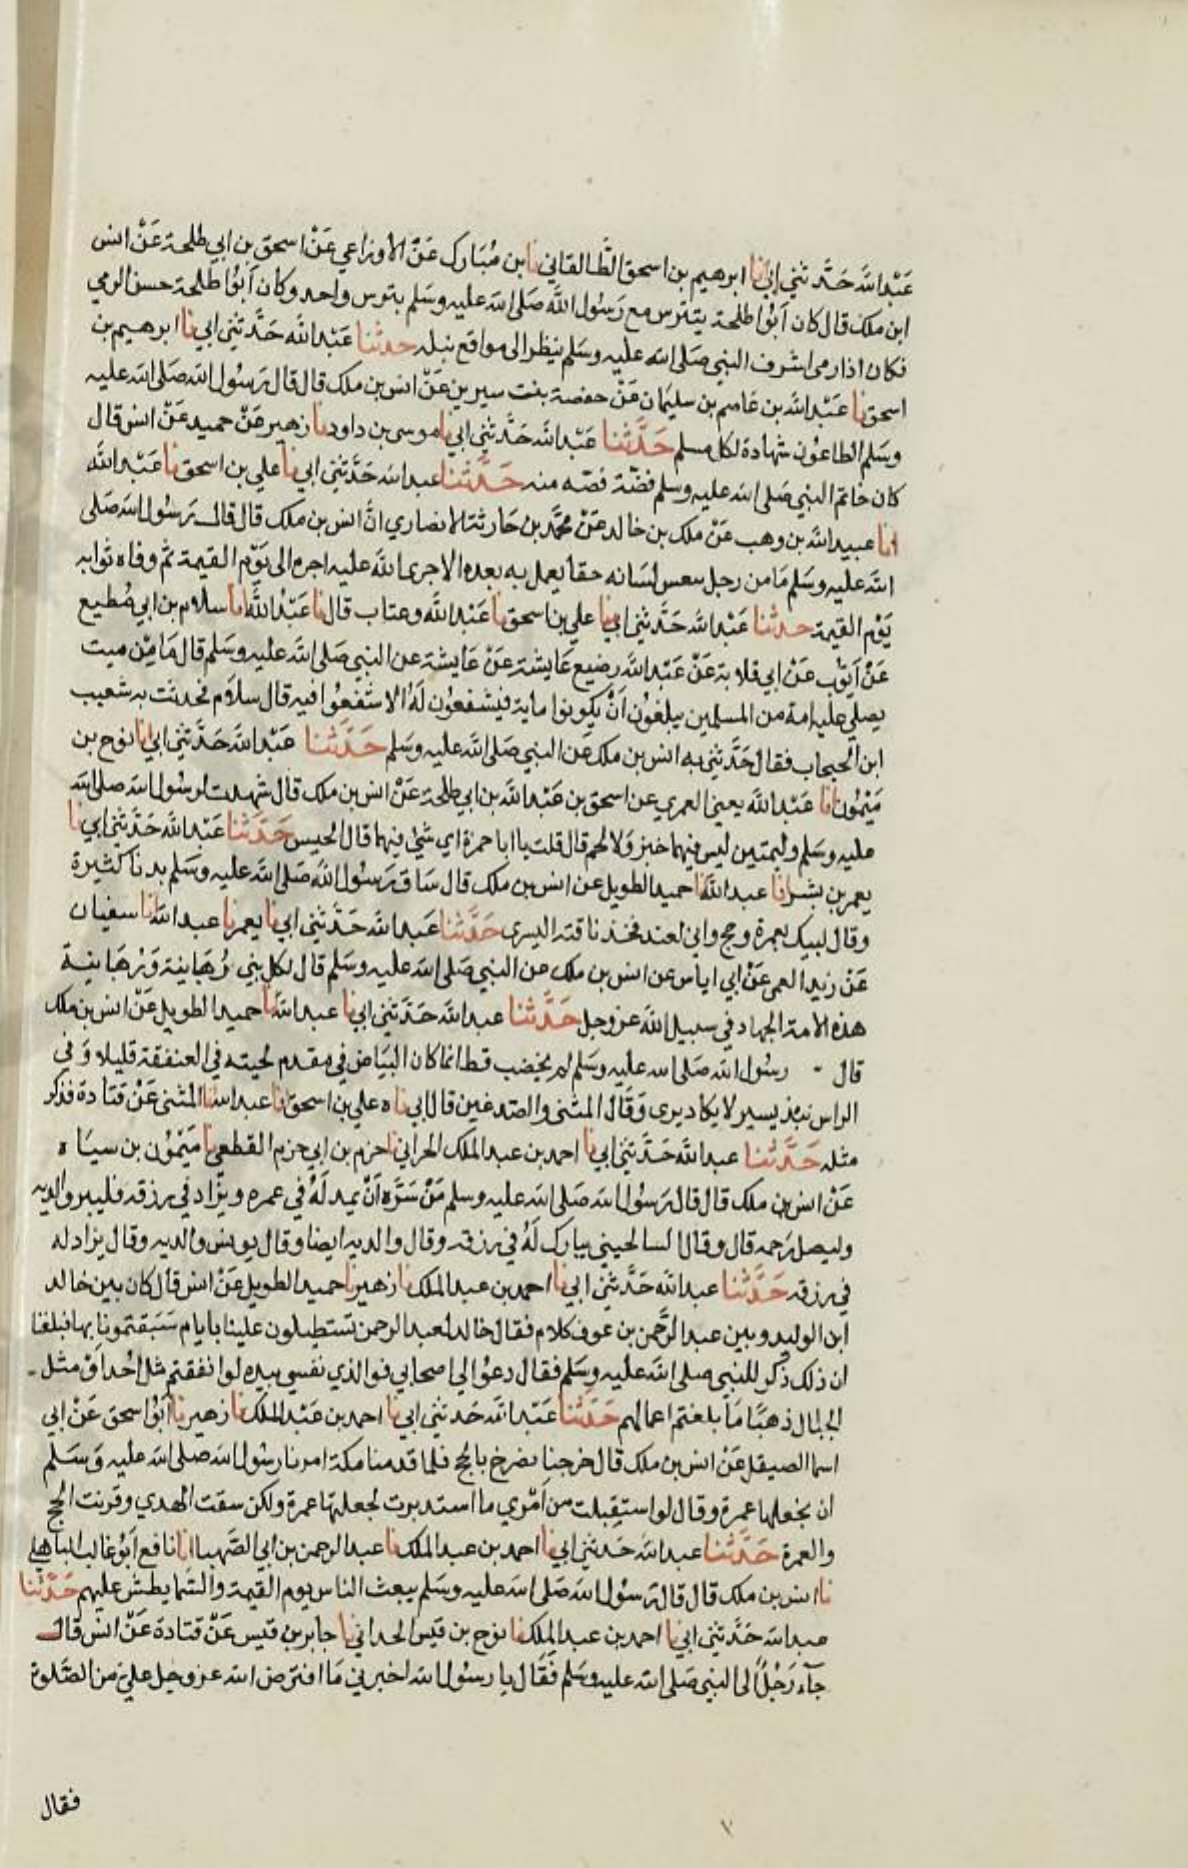 عَبْدالله حَدَّثني ابي انا ابرهيم بن اسحق الطَّالقاني نا ابن مُبَارك عَنْ الاوزاعي عَنْ اسحق بن ابي طلحة عَنْ انس
ابن ملك قال كان اَبُوا طلحة يتترس مع رَسُول الله صَلى الله عليه وسَلم بترس واحد وكان اَبُوا طلحة حسن الرمي
فكان اذا رمى اشرف النبي صَلى الله عليه وسَلم ينظر الى مواقع نبله حدثنا عَبْدالله حَدَّثني ابي نا ابرهيم بن
اسحق نا عَبْدالله بن عَاصم بن سليمَان عَنْ حفصة بنت سيرين عَنْ انس بن ملك قال قال رَسُول الله صَلى الله عليه
وسَلم الطاعُون شهادة لكل مسلم حَدَّثنا عَبْدالله حَدَّثني ابي نا موسى بن داود نا زهير عَنْ حميد عَنْ انس قال
كان خاتم النبي صَلى الله عليه وسلم فضّة فصّه منه حَدَّثنا عبدالله حَدَّثني ابي نا علي بن اسحق نا عَبْدالله
انا عبيدالله بن وهب عَنْ ملك بن خالد عَنْ محمَّد بن حَارثة الانصاري انَّ انس بن ملك قال قال رَسُول الله صَلى
الله عليه وسَلم مَا من رجل ينعش لسَانه حقا يعمل به بعده الا جرى الله عليه اجره الى يَوْم القيمة ثم وفاه ثوابه
يَوْم القيمة حدثنا عَبْدالله حَدَّثني ابي نا علي بن اسحق نا عَبْدالله وعتاب قال نا عَبْدُ الله انا سلام بن ابي مُطيع
عَنْ اَيّوب عَنْ ابي قلابة عَنْ عَبْدالله رضيع عَايشة عَنْ عَايشة عن النبي صَلى الله عليه وسَلم قال مَا مِن ميت
يصلي عليه امة من المسلمين يبلغون اَنْ يكونوا ماية فيشفعُون لَهُ الا شفعُوا فيه قال سلام فحدثت به شعيب
ابن الحبحاب فقال حَدَّثني به انس بن ملك عَن النبي صَلى الله عليه وسَلم حَدَّثنا عَبْدالله حَدَّثني ابي انا نوح بن
مَيْمُون انا عَبْدالله يعني العمري عن اسحق بن عَبْدالله بن ابي طلحة عَنْ انس بن ملك قال شهدت لرسُول الله صَلى الله
عليه وسَلم وليمتين ليس فيهما خبز وَلا لحم قال قلت يا ابا حمزة اي شي فيهما قال الحيس حَدَّثنا عَبْدالله حَدَّثني ابي نا
يعمر بن بشر انا عبدالله انا حميد الطويل عن انس بن ملك قال سَاق رَسُول الله صَلى الله عليه وسَلم بدنا كثيرة
وقال لبيك بعمرة وحج واني لعند فخذ ناقته اليسرى حَدَّثنا عَبدالله حَدَّثني ابي نا يعمر نا عبدالله انا سفيان
عَنْ زيد العمى عَنْ ابي اياس عن انس بن ملك عن النبي صَلى الله عليه وسَلم قال لكل نبي رُهبَانية وَرُهبَانية
هذه الامة الجهاد في سبيل الله عز وجل حَدَّثنا عبدالله حَدَّثني ابي نا عبدالله انا حميد الطويل عَنْ انس بن ملك
قال رسُول الله صَلى الله عليه وسَلم لم يخضب قط انما كان البيَاض في مقدم لحيته في العنفقة قليلا وَفي
الراس نبذ يسير لا يكاد يرى وَقَال المثنى والصدغين قال ابي ناه علي بن اسحق نا عبدالله نا المثنى عَنْ قتادة فذكر
مثله حَدَّثنا عبدالله حَدَّثني ابي نا احمد بن عبد الملك الحراني نا حزم بن ابي حزم القطعي نا مَيْمُون بن سيَاه
عَنْ انس بن ملك قال قال رَسُول الله صَلى الله عليه وسلم مَنْ سَرَّه اَنْ يمد لَهُ في عمره ويزاد في رزقه فليبر والديه
وليصل رَحمه قال وقال السالحيني يبارك لَهُ في رزقه وقال والديه ايضا وقال يونس والديه وقال يزاد له
في رزقه حَدَّثنا عبدالله حَدَّثني ابي نا احمد بن عبد الملك نا زهير نا حميد الطويل عَنْ انس قال كان بين خالد
ابن الوليد وبين عبد الرَّحمن بن عوف كلام فقال خالد لعبد الرحمن تستطيلون علينا بايام سَبَقتمونا بها فبلغنا
ان ذلك ذُكر للنبي صلى الله عليه وسَلم فقال دعُوا لي اصحابي فو الذي نفسي بيده لو انفقتم مثل اُحد اوْ مثل
الجبال ذهبًا مَا بلغتم اعمالهم حَدَّثنا عَبْدالله حَدثني ابي نا احمد بن عَبْد الملك نا زهير نا اَبُوا اسحق عَنْ ابي
اسما الصيقل عَنْ انس بن ملك قال خرجنا نصرخ بالحج فلما قدمنا مكة امرنا رسُول الله صلى الله عليه وَسَلم
ان نجعلها عمرة وقال لو استقبلت من اَمْري ما استدبرت لجعلتها عمرة ولكن سقت الهدي وقرنت الحج
والعمرة حَدَّثنا عبدالله حَدثني ابي نا احمد بن عبد الملك نا عبد الرحمن بن ابي الصَّهبا انا نافع اَبُو غالب الباهلي
نا انس بن ملك قال قال رَسُول الله صَلى الله عليه وسَلم يبعث الناس يوم القيمة والسَّما يطش عليهم حَدَّثنا
عبدالله حَدَّثني ابي نا احمد بن عبد الملك نا نوح بن قيس الحداني نا جابر بن قيس عَنْ قتادة عَنْ انس قال
جآء رَجُلٌ الى النبي صَلى الله عليه وسَلم فَقَال يا رسُول الله اخبرني مَا افترض الله عز وجل عليّ من الصَّلوة
فقال